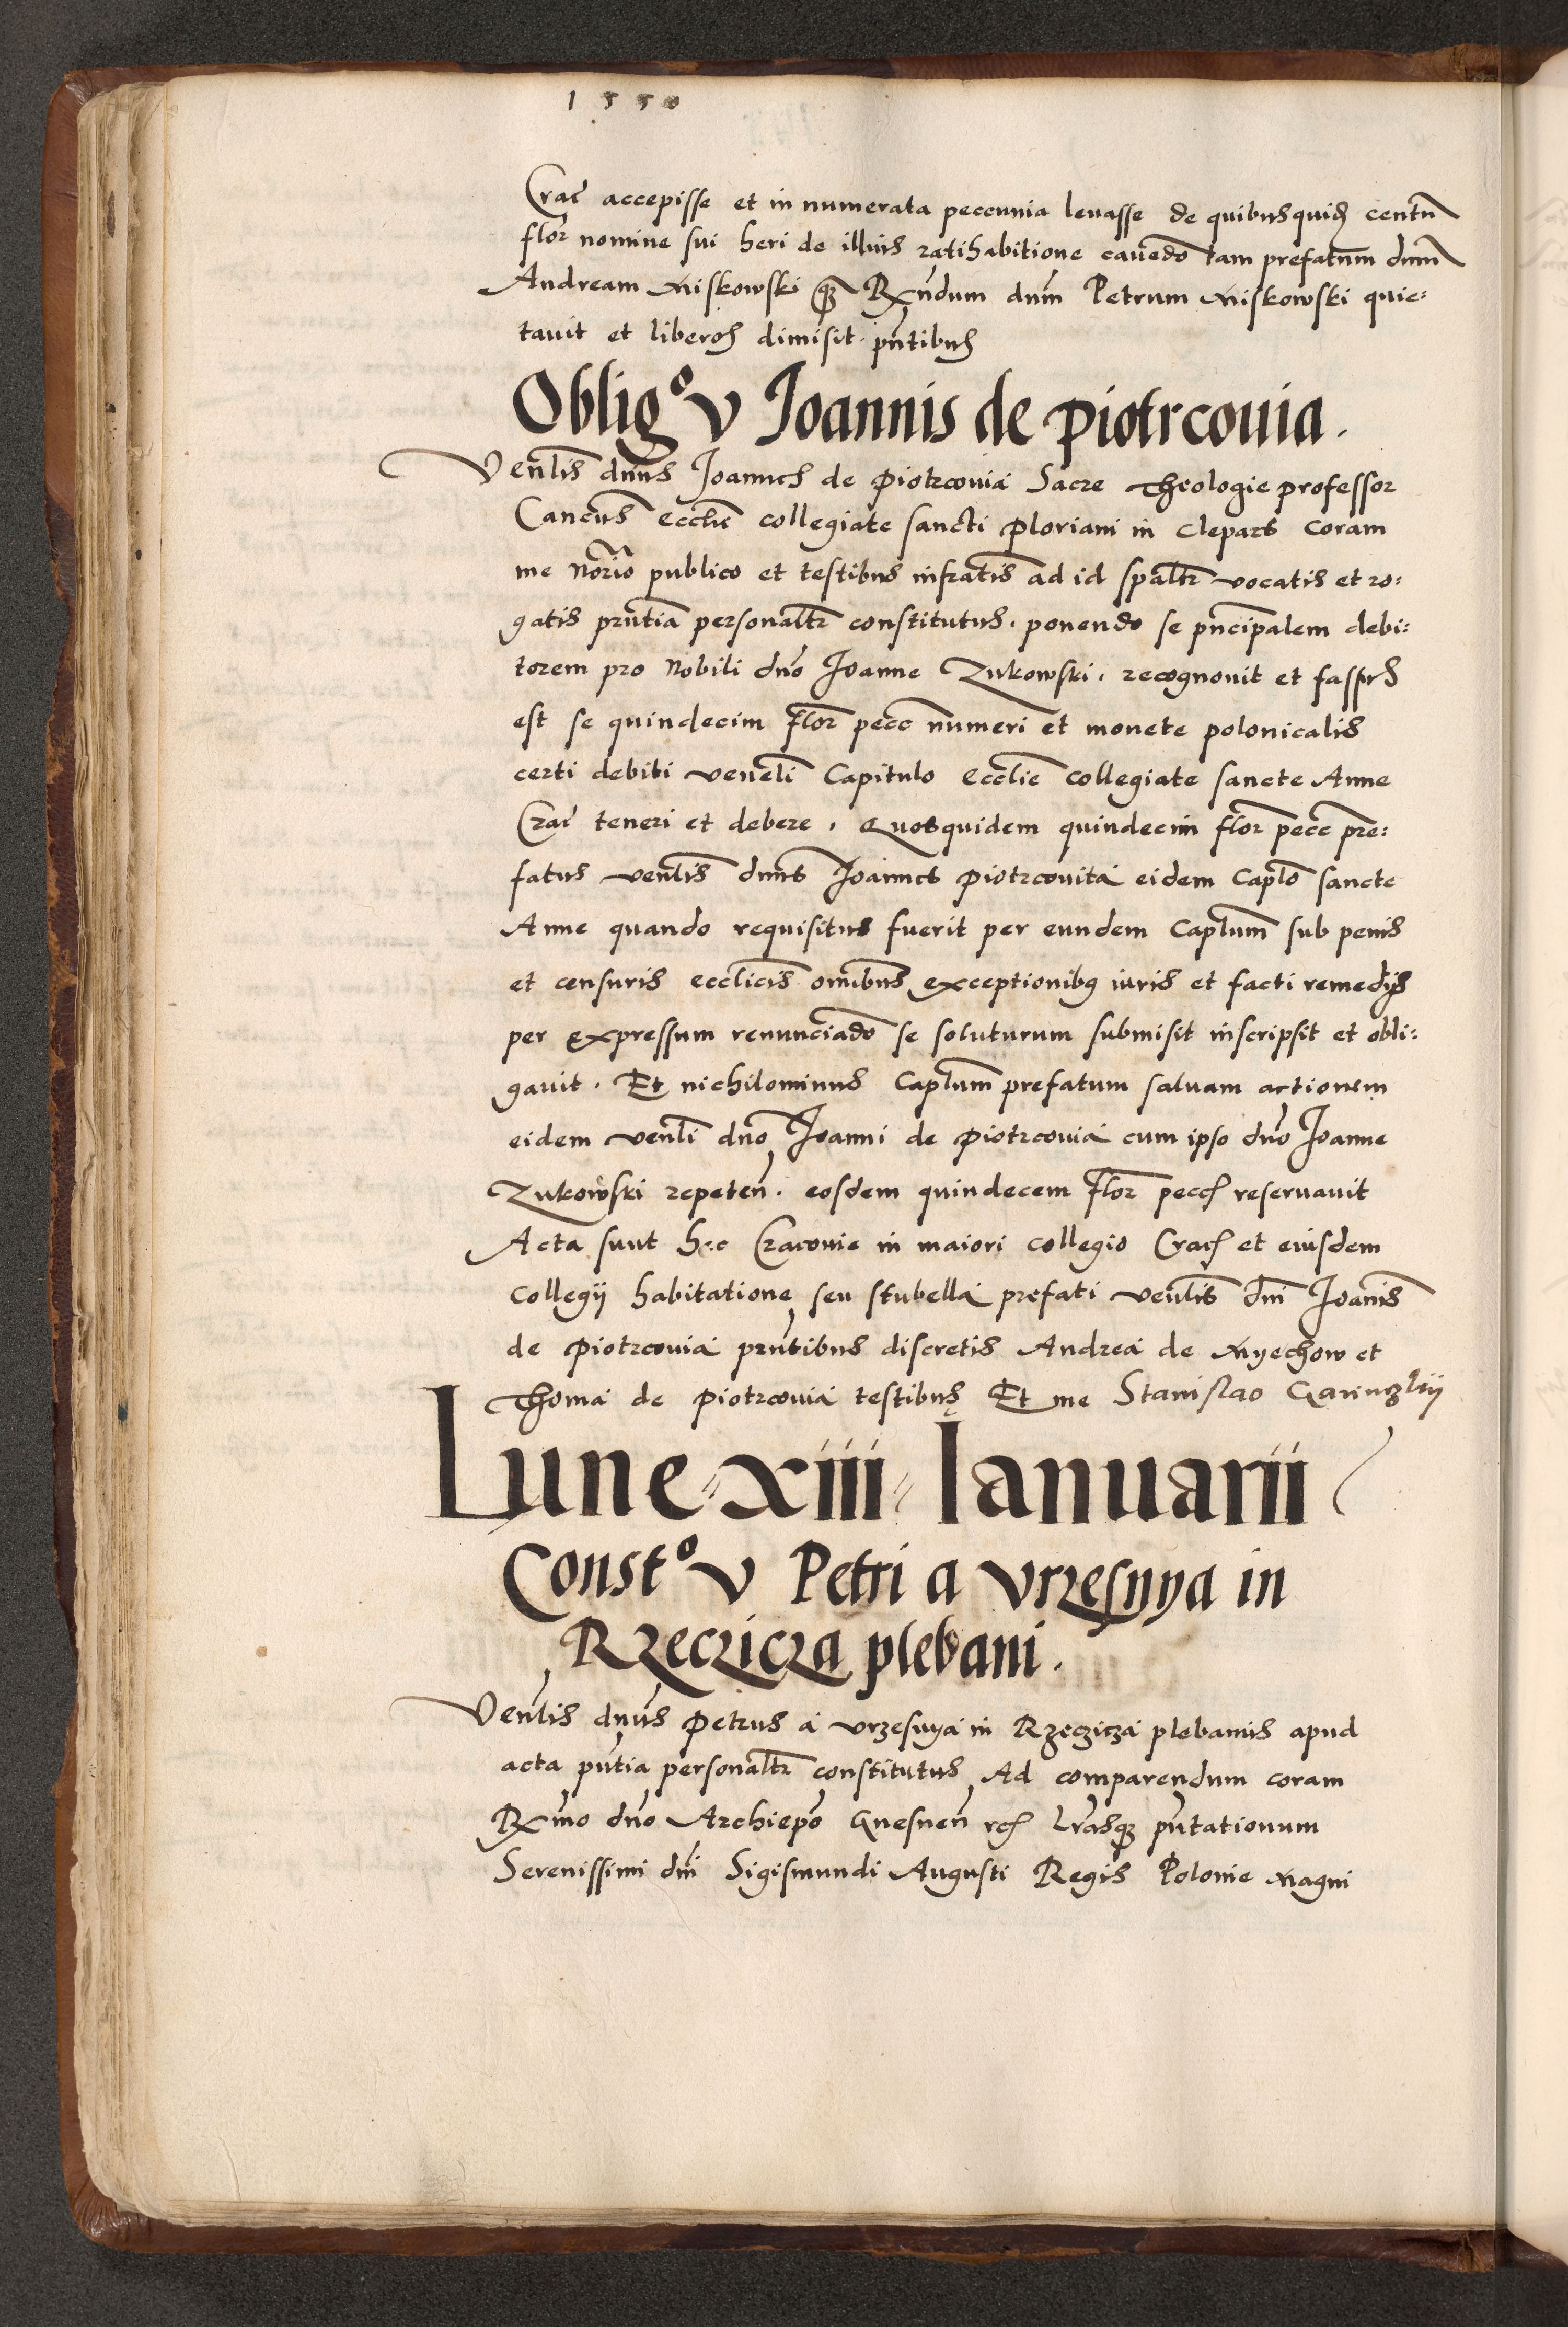 1550
Crac accepisse et in numerata peccunia levasse de quibusquid centu
flor nomine sui heri de illius ratihabitione cavendo tam prefatum dnm
Andream Miskowski q Rndum dnm Petrum Miskowski quie:
tavit et liberos dimisit pntibus
Obligo V Joannis de Piotrcovia.
Venlis dnus Joannes de Piotrcovia Sacre Theologie professor
Cancus ecclie collegiate sancti Floriani in Clepars coram
me norio publico et testibus infratis ad id spaltr vocatis et ro:
gatis pruntia personaltr constitutus. ponendo se pncipalem debi:
torem pro Nobili dno Joanne Zukowski. recognovit et fassus
est se quindecim flor pecc numeri et monete polonicalis
certi debiti veneli Capitulo ecclie collegiate sancte Anne
Crac teneri et debere. Quosquidem quindecim flor pecc pre:
fatus venlis dnus Joannes Piotrcovita eidem Caplo sancte
Anne quando requisitus fuerit per eundem Caplum sub penis
et censuris ecclicis omibus exceptionibus iuris et facti remedys
per expressum renunciado se soluturum submisit inscripsit et obli:
gavit. Et nichilominus Caplum prefatum salvam actionem
eidem venli dno Joanni de Piotrcovia cum ipso dno Joanne
Zukowski repeten. eosdem quindecem flor pecc reservavit
Acta sunt hec Cracovie in maiori collegio Crac et eiusdem
Collegij habitatione seu stubella prefati venlis dni Joanis
de Piotrcovia pruntibus discretis Andrea de Myechow et
Thoma de Piotrcovia testibus Et me Stanislao
Lune xiii Ianuarii
Consto V Petri a Vrzesnya in
Rzeczicza plebani.
Venlis dnus Petrus a Vrzesnya in Rzeczicza plebanus apud
acta pntia personaltr constitutus Ad comparendum coram
Rxmo dno Archiepo Gnesnen rc Lrasq pntationum
Serenissimi dni Sigismundi Augusti Regis Polonie Magni